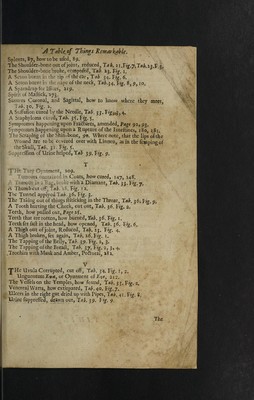 A Table of Things Remarkable.
Splents, 87, how to be used, 89.
The Shoulder-bone out of joint, reduced, Tab. 21. Fig. 7, Tab. 23. F. 5.
The Shoulder-bone broke, composed, Tab. 23. Fig. 1.
A Seton borne in the tip of the ear, Tab. 32. Fig. 6.
A Seton borne in the nape of the neck, Tab. 34. Fig. 8, 9, 10.
A Sparadrop for Issues, 219.
Spirit of Mastick, 275.
Sutures Coronal, and Sagittal, how to know where they meet,
Tab. 30, Fig. 2.
A Suffusion cured by the Needle, Tab. 33. Fig.
A Staphyloma cured, Tab. 35. Fig. 5.
Symptoms happening upon Fractures, amended, Page 92, 93.
Symptoms happening upon a Rupture of the Intestines, 180, 181.
The Scraping of the Shin-bone, 99. Where note, that the lips of the
Wound are to be covered over with Linnen, as in the scraping of
the Skull, Tab. 31. Fig. 5.
Suppression of Urine helped, Tab. 39. Fig. 9.
T
The Tory Ointment, 209.
Tumours supurated by Causts, how cured, 147, 148.
A in a made with a Diamant, Tab. 33. Fig. 7.
A Thumb cut off, Tab. 18. Fig. 16.
The Trunnel applyed Tab. 36. Fig. 3.
The Taking out of things sticking in the Throat, Tab. 36. Fig. 9.
A Tooth hurting the Cheek, cut out, Tab. 36. Fig. 2.
Teeth, how pulled out, Page 16.
Teeth that are rotten, how burned, Tab. 36. Fig. 1.
Teeth set fast in the head, how opened, Tab. 36. Fig. 6.
A Thigh out of joint, Reduced, Tab. 25. Fig. 2.
A Thigh broken, set again, Tab. 26. Fig. 1.
The Tapping of the Belly, Tab. 39. Fig. 2, 3.
The Tapping of the breast, Tab. 37. Fig. 2, 3, 4.
Trochisks with Musk and Amber, Pectoral, 282.
V
The Uvula Corrupted, cut off, Tab. 36. Fig. 1, 2.
Unguentum or Ointment of 212.
The Vessels on the Temples, how seared, Tab. 35. Fig. 2.
Venereal Warts, how extirpated, Tab. 40. Fig. 7.
Ulcers in the right gut dried up with Pipes, Tab. 41. Fig. 8.
Urine suppressed, drawn out, Tab. 39. Fig. 9.
The